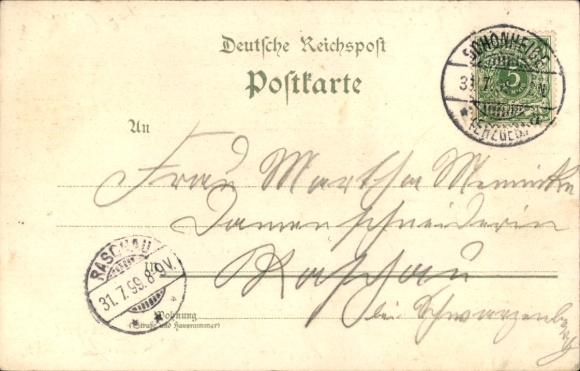 Deutsche Reichspost
Postkarte
SCHÖNHEIDE
31.7.
5
V.
(ERZGEB.)
An
Frau Martha
Damenschneiderin
in
Raschau
bei Schwarzenberg
RASCHAU
31.7.99.8-9V.
Wohnung
(Straße und Hausnummer)